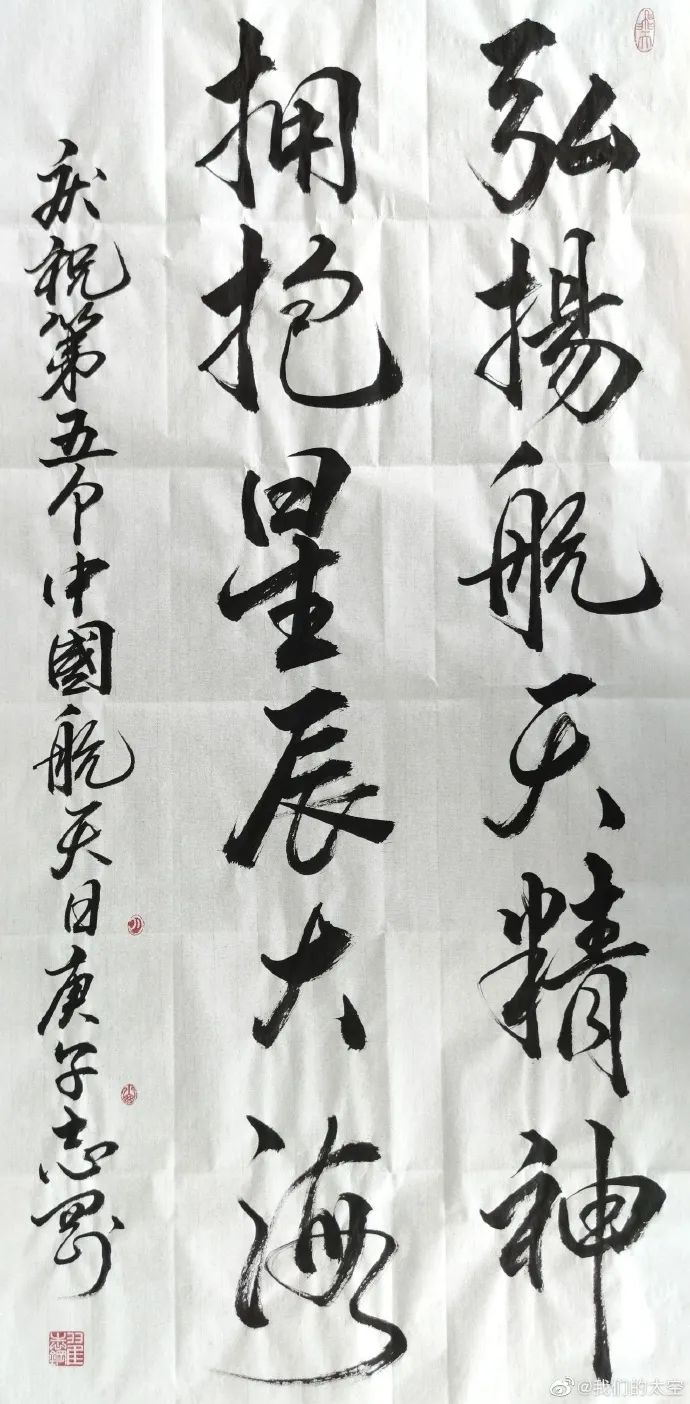 弘揚航天精神
拥抱星辰大海
庆祝第五个中國航天日庚子志剛
@我们的太空